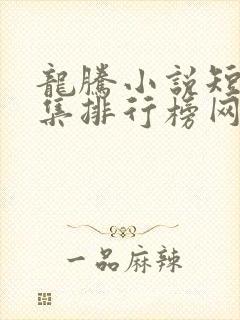 龍騰小說短
集排行榜网
一品麻辣